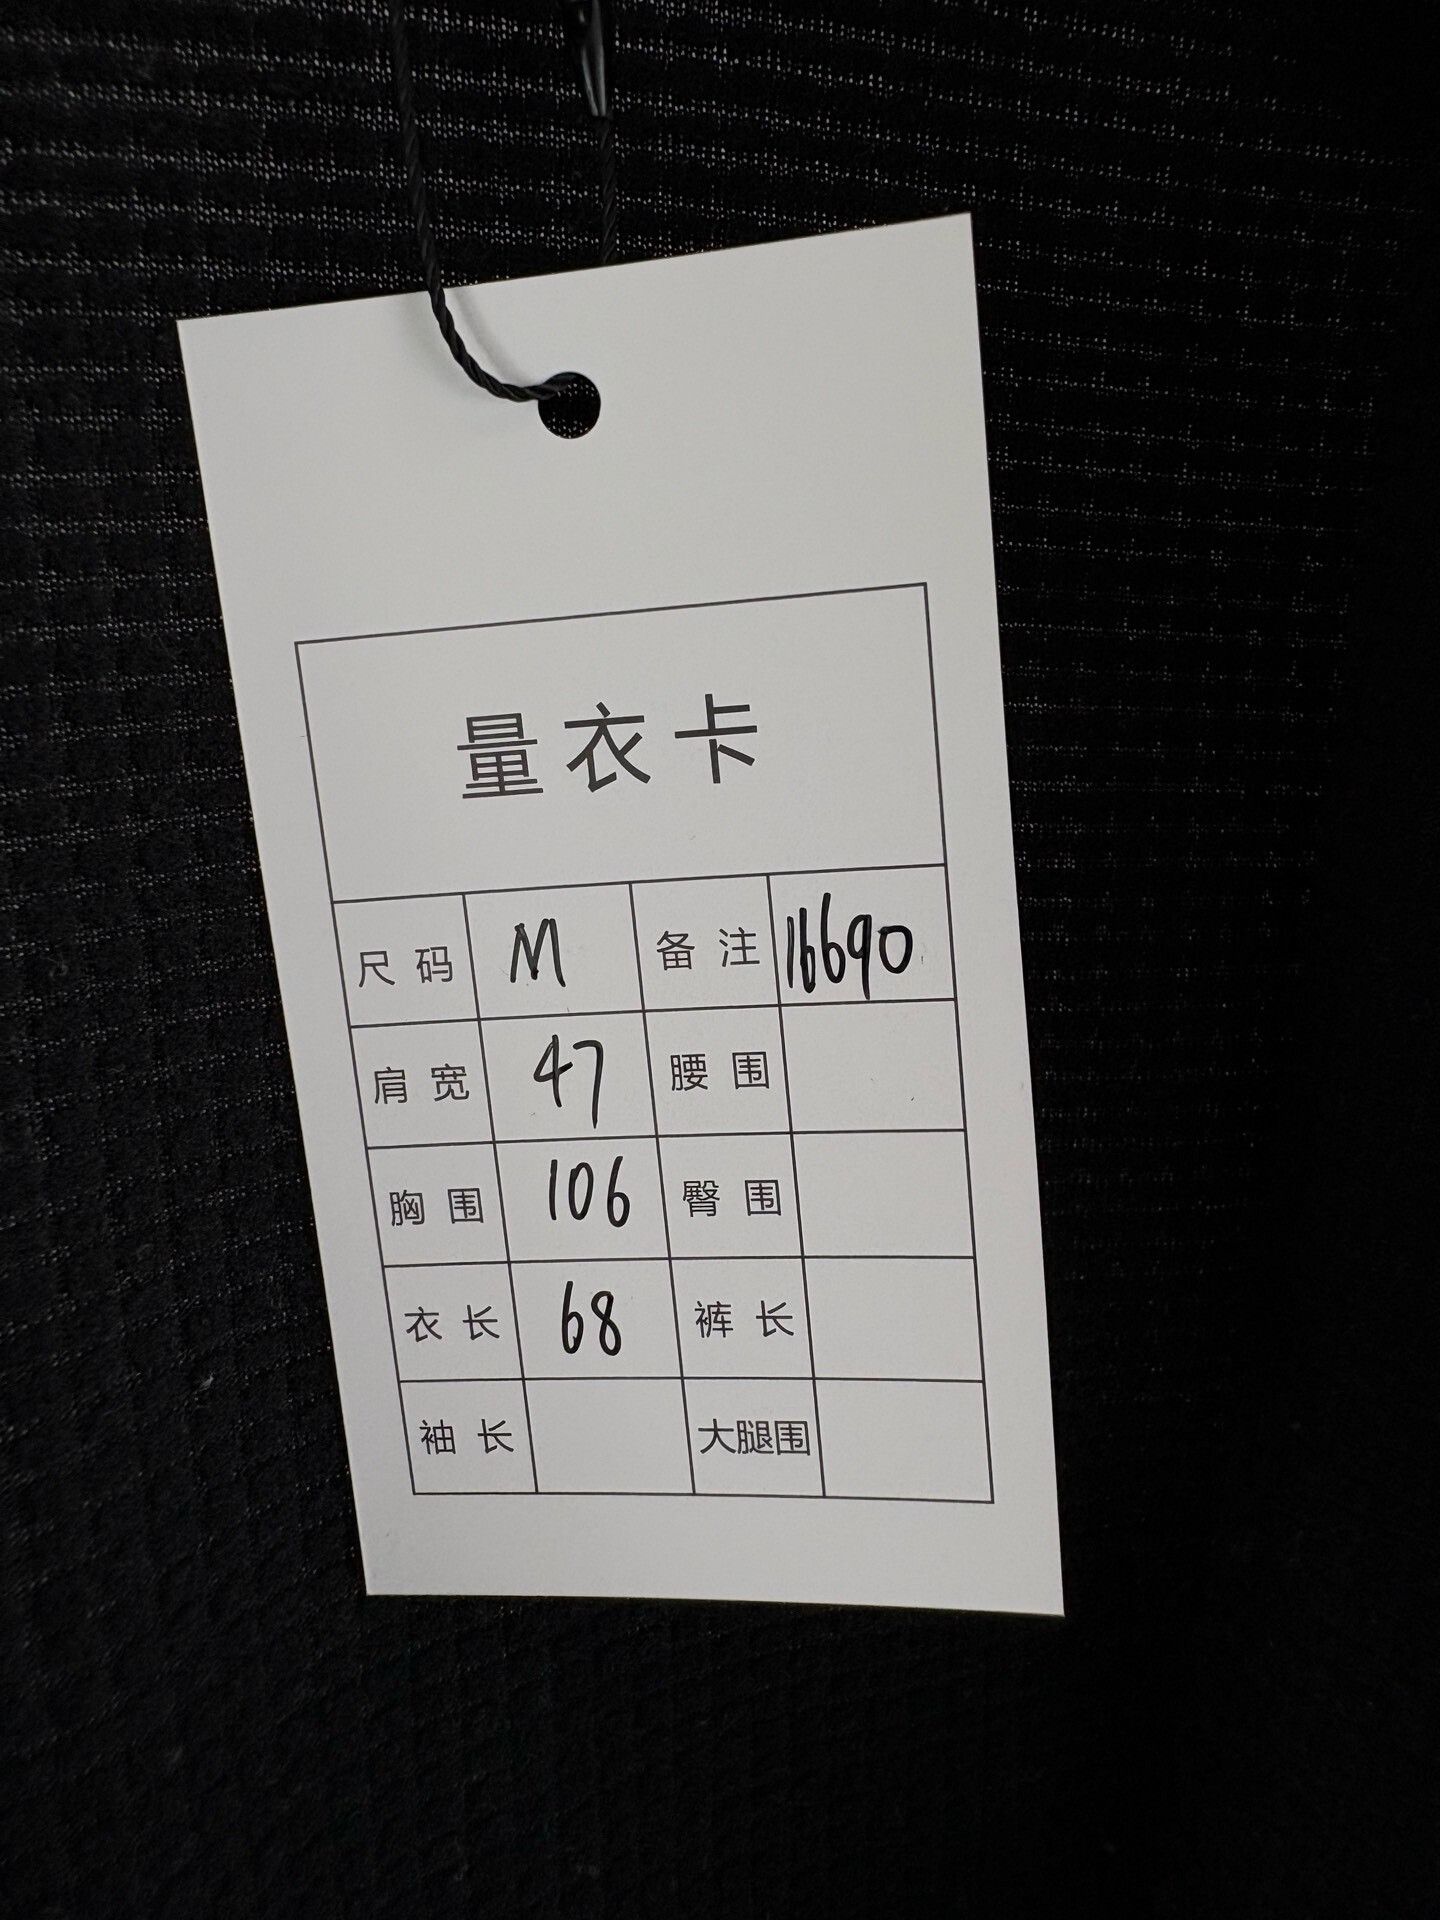 量衣卡
尺码 M 备注 16690
肩宽 47 腰围
胸围 106 臀围
衣长 68 裤长
袖长 大腿围